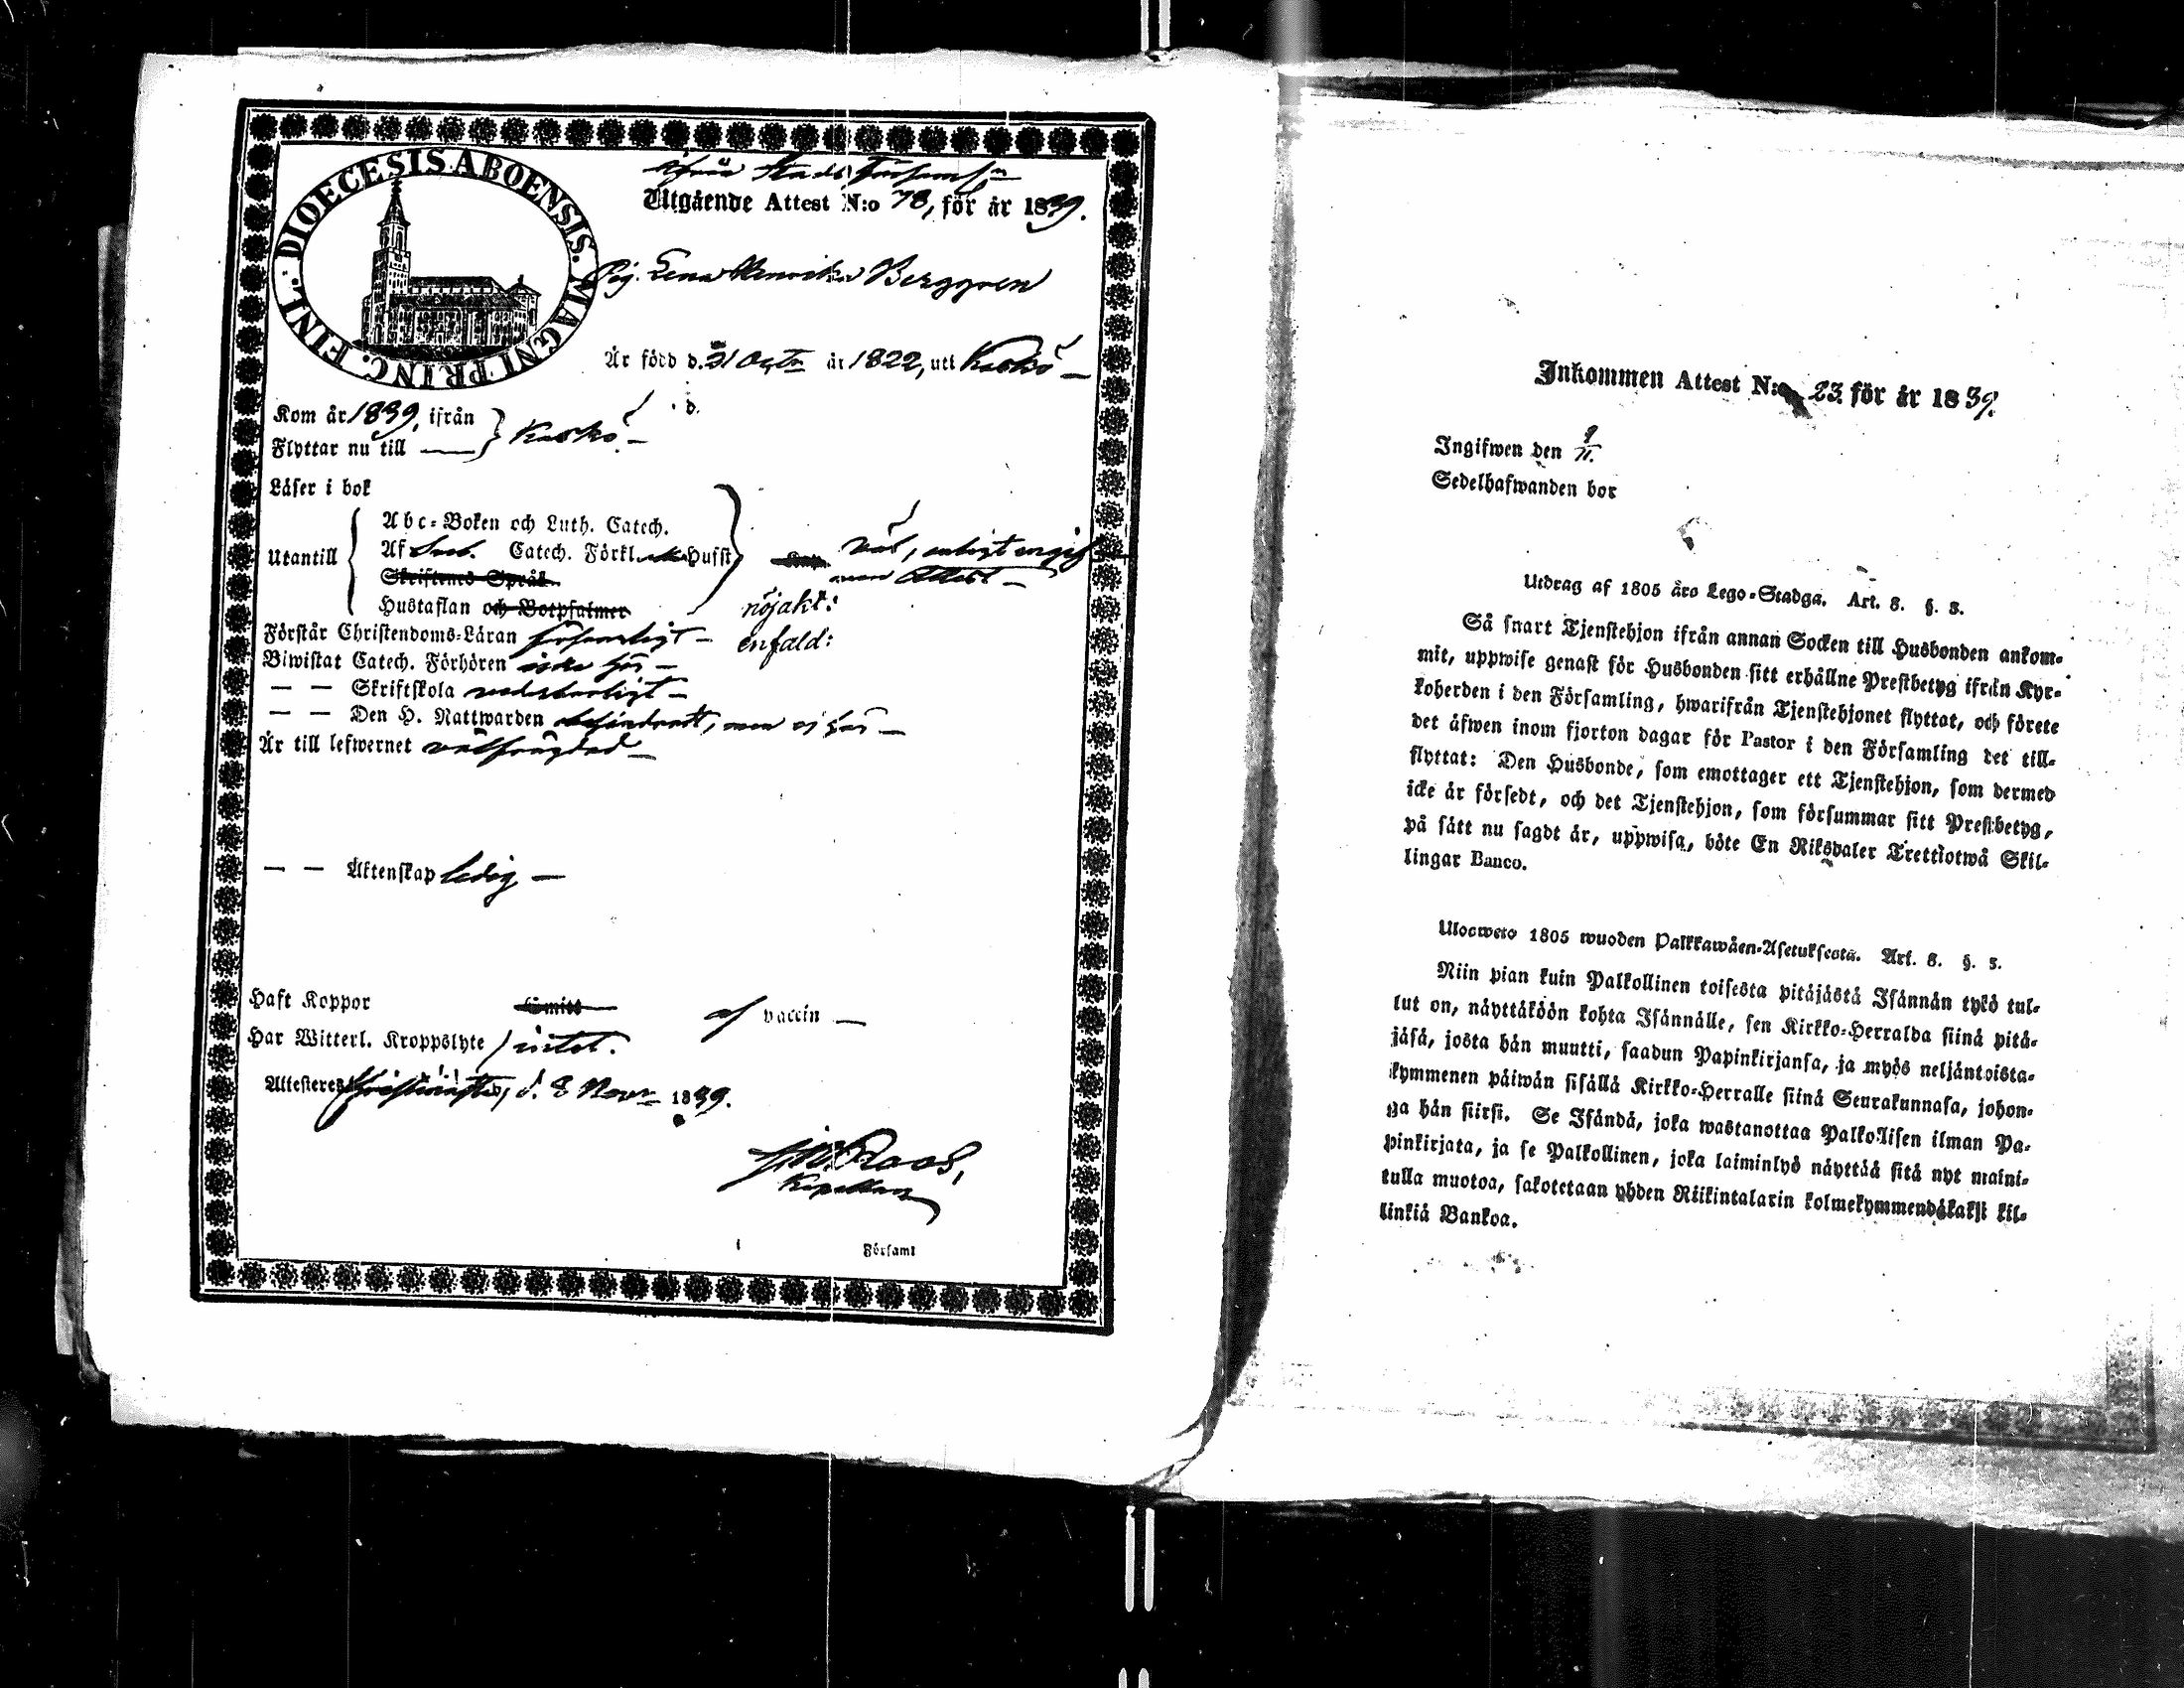 DIOECESIS ABOENSIS. MAGNI PRINC. FINL.
ifrån Stads Församl:n
Utgående Attest N:o 78, för år 1839.
Pig. Lena Henrika Berggren
År född d. 21 Octr år 1822, uti Kaskö
d.
Kom år 1839, ifrån
Flyttar nu till } Kaskö
Läser i bok
Utantill
Abc-Boken och Luth. Catech.
Af Sveb. Catech. Förkl. Hufst
Skriftenes Språk
Hustaflan och Botpsalmer
väl, enligt ingif
Attest
nöjakt:
enfald:
Förstår Christendoms-Läran försvarligt
Biwistat Catech. Förhören icke här
— — Skriftskola
— — Den H. Nattwarden men ej här
År till lefwernet välfrägdad
— — Äktenskap ledig
Haft Koppor af vaccin
Har Witterl. Kroppslyte intet.
Attesteres Christinestad, d. 8 Novr 1839.
Roos,
Kapellan
Församl
Inkommen Attest N:o 23 för år 1839.
Ingifwen den 9/11.
Sedelhafwanden bor
Utdrag af 1805 års Lego-Stadga. Art. 8. §. 3.
Så snart Tjenstehjon ifrån annan Socken till Husbonden ankom-
mit, uppwise genast för Husbonden sitt erhållne Prestbetyg ifrån Kyr-
koherden i den Församling, hwarifrån Tjenstehjonet flyttat, och förete
det äfwen inom fjorton dagar för Pastor i den Församling det till-
flyttat: Den Husbonde, som emottager ett Tjenstehjon, som dermed
icke är försedt, och det Tjenstehjon, som försummar sitt Prestbetyg,
på sätt nu sagdt är, uppwisa, böte En Riksdaler Trettiotwå Skil-
lingar Banco.
Uloswetö 1805 wuoden Palkkawäen-Asetuksesta. Art. 8. §. 3.
Niin pian kuin Palkollinen toisesta pitäjästä Isännän tykö tul-
lut on, näyttäköön kohta Isännälle, sen Kirkko-Herralda siinä pitä-
jäsä, josta hän muutti, saadun Papinkirjansa, ja myös neljäntoista-
kymmenen päiwän sisällä Kirkko-Herralle siinä Seurakunnasa, johon-
ga hän siirsi. Se Isändä, joka wastanottaa Palkollisen ilman Pa-
pinkirjata, ja se Palkollinen, joka laiminlyö näyttää sitä nyt maini-
tulla muotoa, sakotetaan yhden Riikintalarin kolmekymmendäkaksi kil-
linkiä Bankoa.